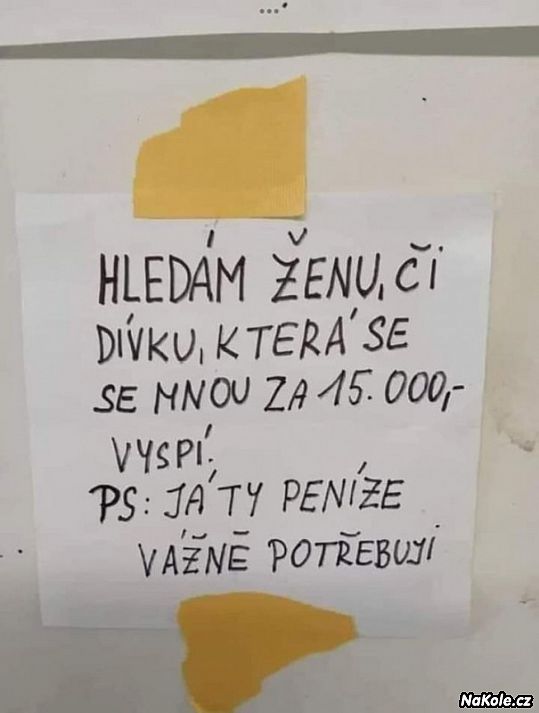 HLEDÁM ŽENU, ČI
DÍVKU, KTERÁ SE
SE MNOU ZA 15.000,-
VYSPÍ.
PS: JÁ TY PENÍZE
VÁŽNĚ POTŘEBUJI
NaKole.cz